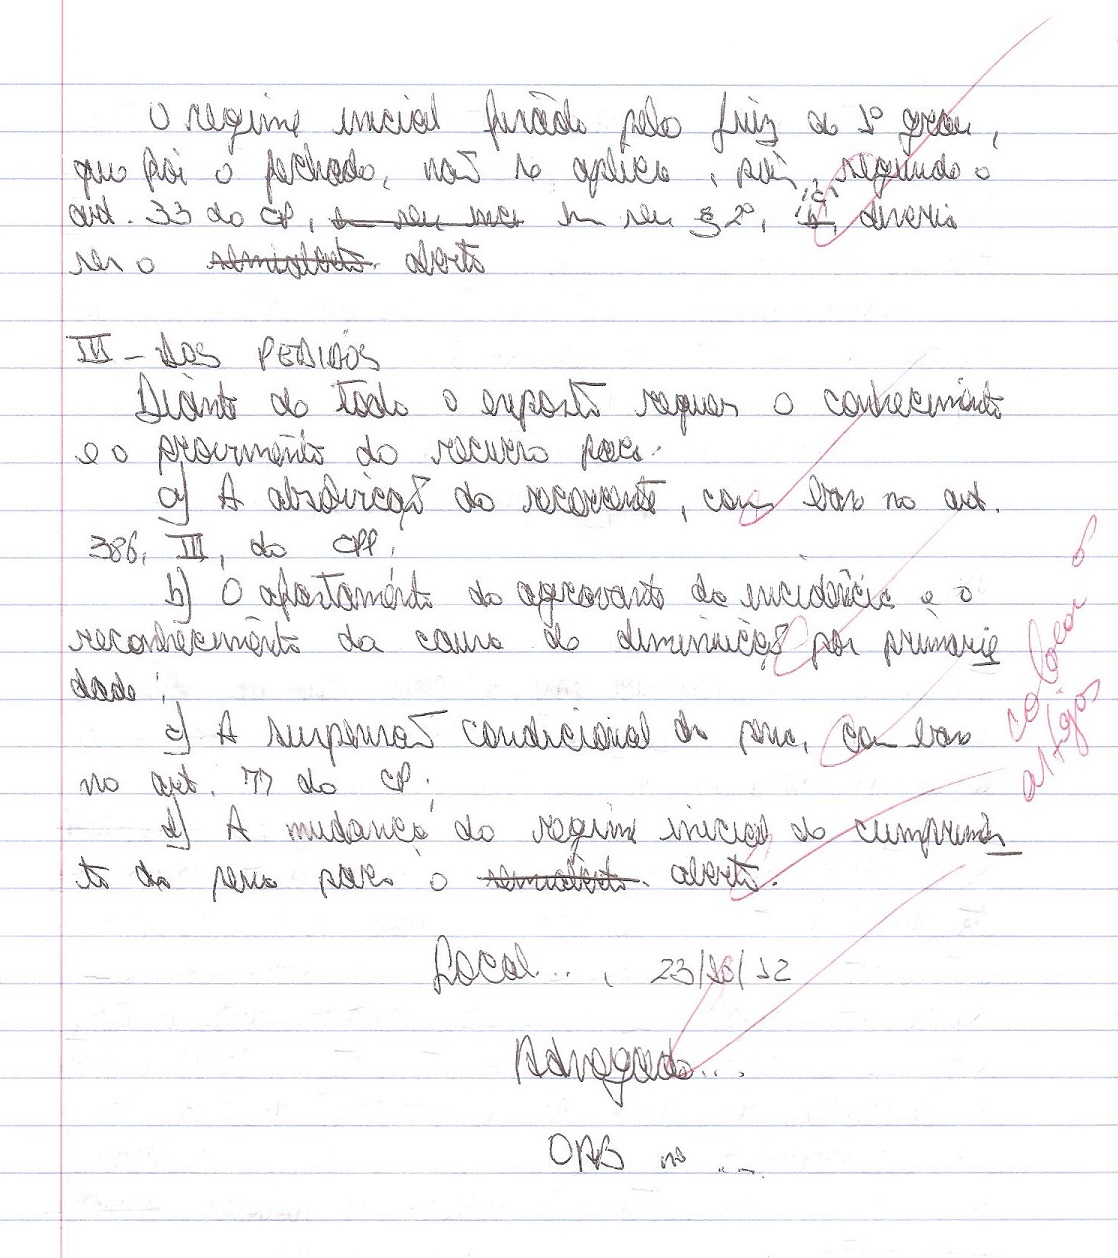 O regime inicial fixado pelo Juiz de 1º grau,
que foi o fechado, não se aplica, pois, segundo o
art. 33 do CP, em seu § 2º, "c", deveria
ser o semiaberto aberto
III - DOS PEDIDOS
Diante de todo o exposto requer o conhecimento
e o provimento do recurso para:
a) A absolvição do recorrente, com base no art.
386, III, do CPP;
b) O afastamento da agravante de incidência e o
reconhecimento da causa de diminuição por primarie
dade;
c) A suspensão condicional da pena, com base
no art. 77 do CP;
d) A mudança do regime inicial de cumprimen
to da pena para o semiaberto aberto.
colocar o
artigos
Local..., 23/10/12
Advogado...
OAB nº ...